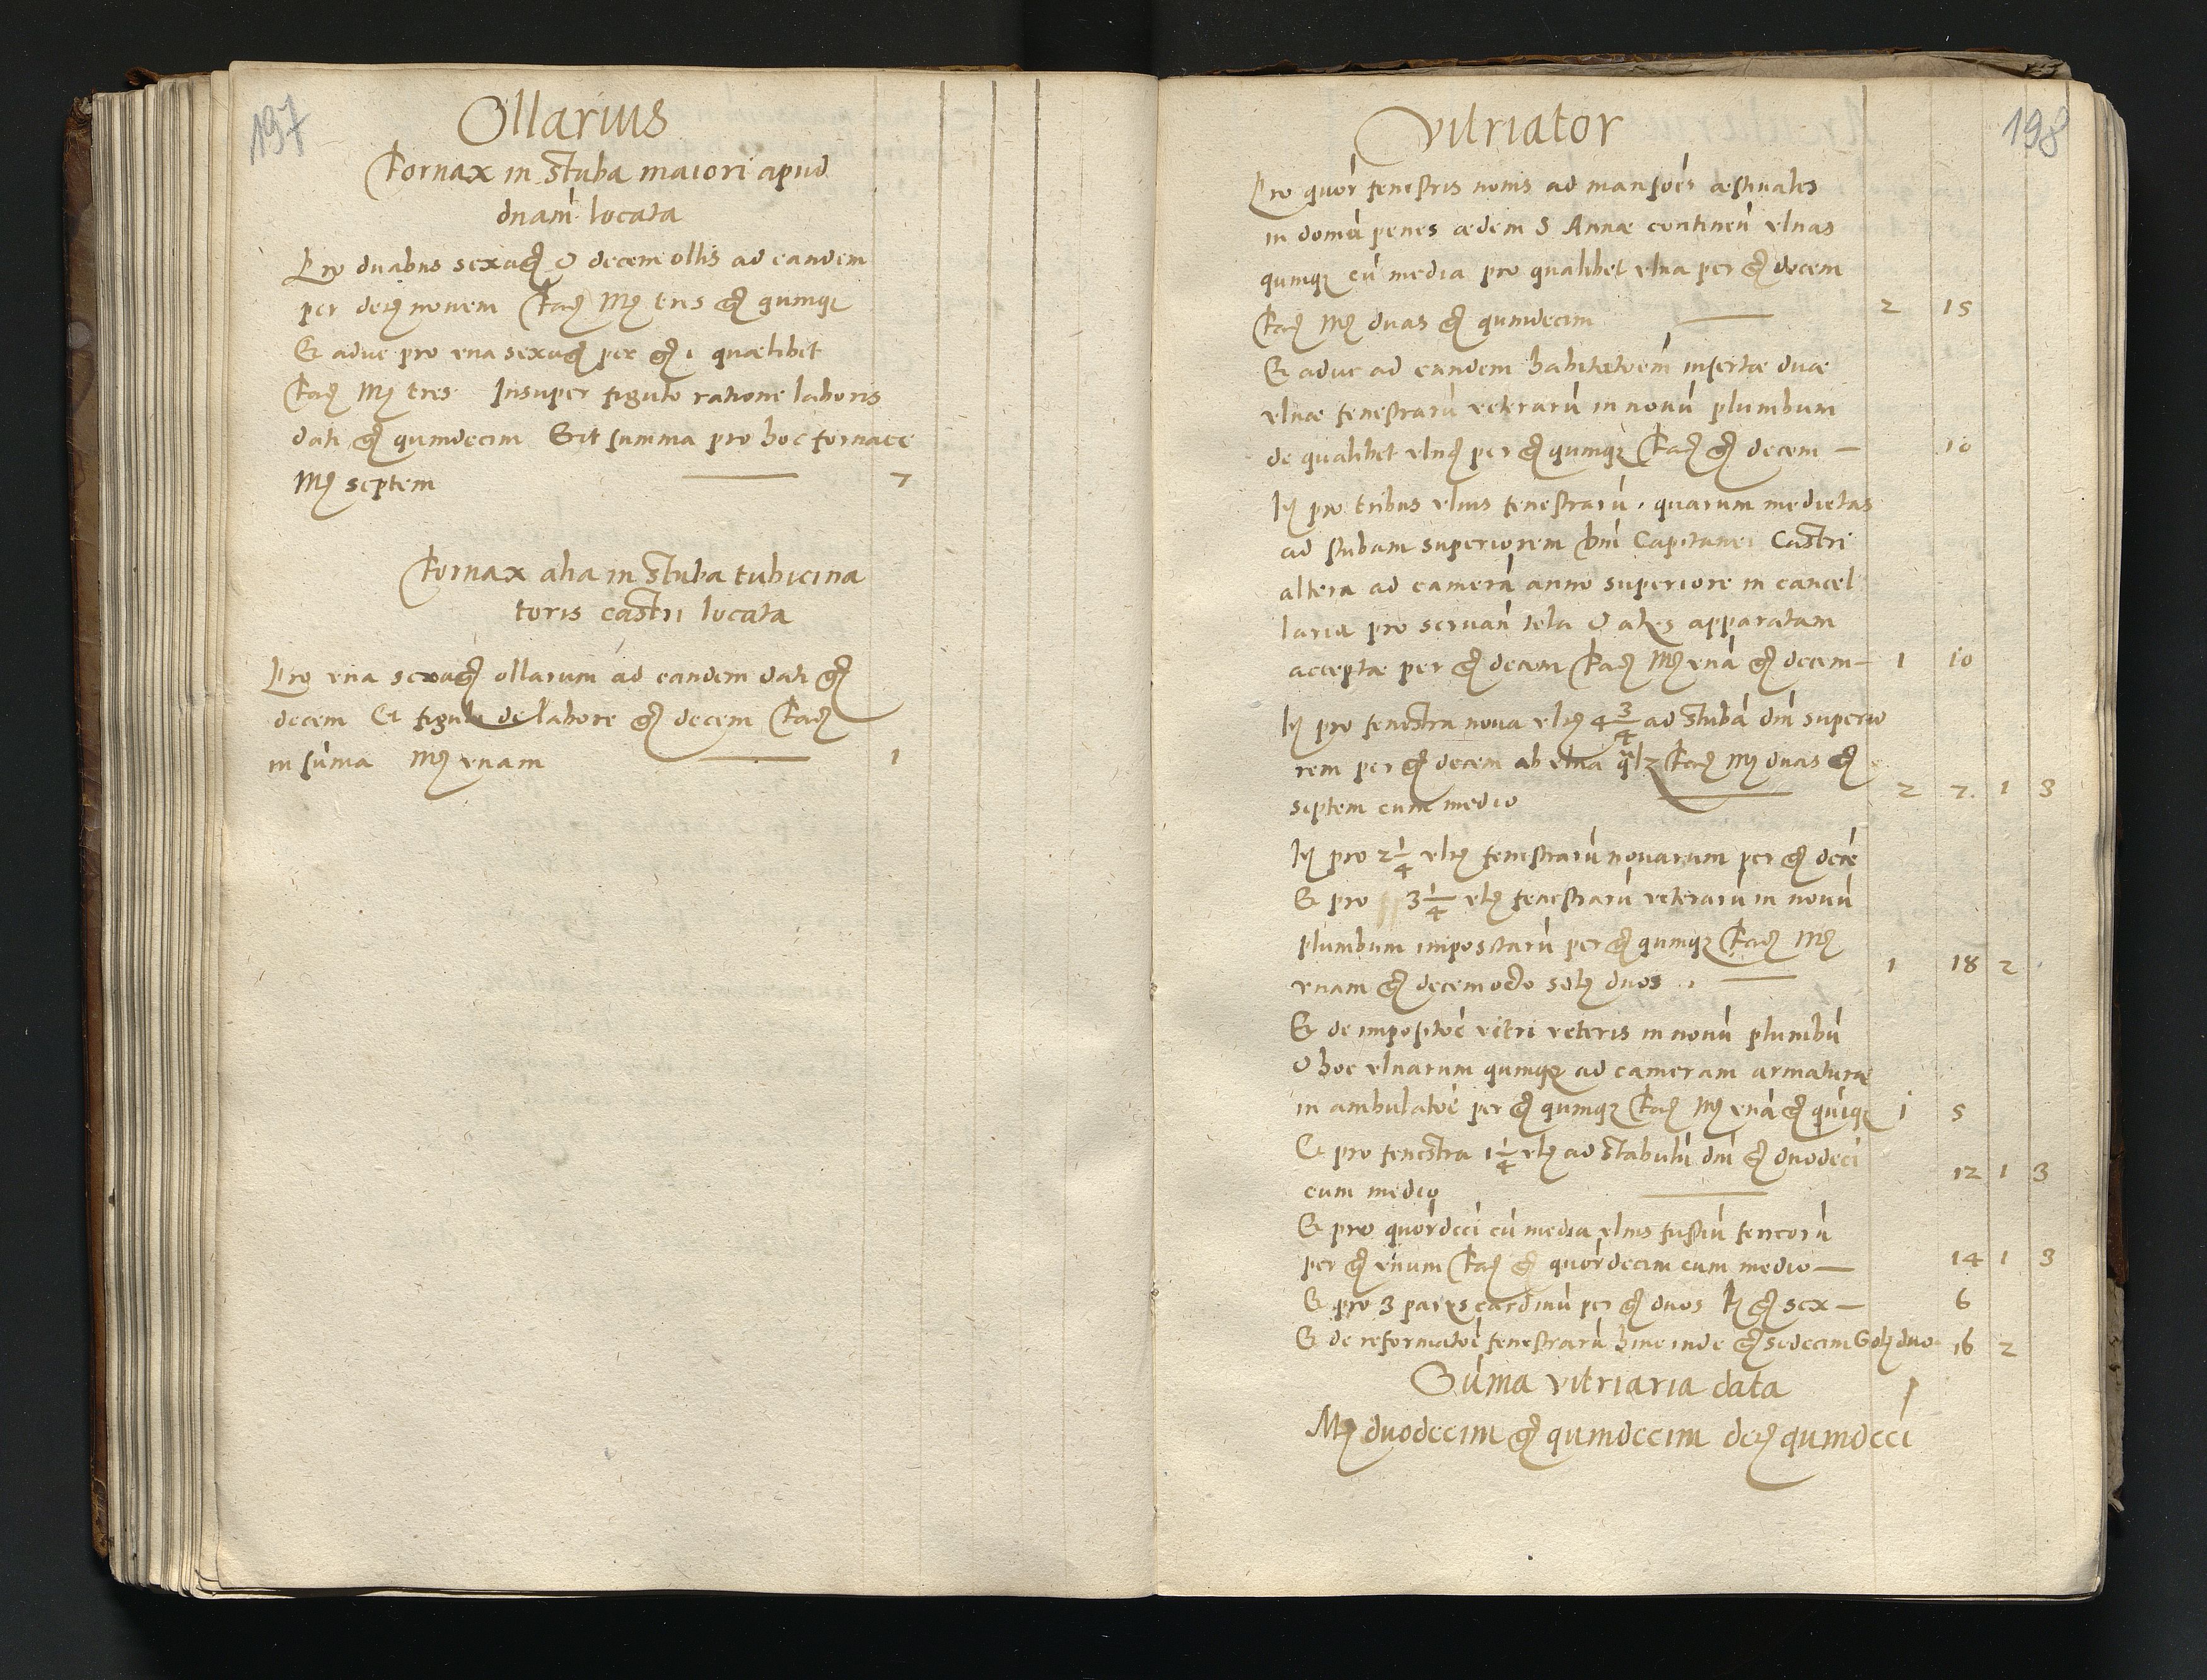 197
Ollarius
Fornax in stuba maiori apud
dnam locata
Pro duabus sexag & decem ollis ad eandem
per den novem Fac Mc tres gr quinqz
Et aduc pro una sexag per gr 1 quaelibet
Fac Mc tres Insuper figulo ratione laboris
dati gr quindecim Sit summa pro hoc fornace
Mc septem 7
Fornax alia in stuba tubicina
toris castri locata
Pro una sexag ollarum ad eandem dati gr
decem Et figulo de labore gr decem Fac
in suma Mc unam 1
198
Vitriator
Pro quor fenestris novis ad mansoes aestivales
in domu penes aedem S Annae continen ulnas
quinqz cu media pro qualibet ulna per gr decem
Fac Mc duas gr quindecim 2 15
Et aduc ad eandem habitatoem insertae duae
ulnae fenestraru veteraru in novu plumbum
de qualibet ulna per gr quinqz Fac gr decem 10
It pro tribus ulnis fenestraru, quarum medietas
ad stubam superiorem dni Capitanei Castri
altera ad camera anno superiore in cancel
laria pro servan tela & apparatam
acceptae per gr decem Fac Mc una gr decem 1 10
It pro fenestra nova uln 4 3/4 ad stuba dni superio
rem per gr decem ab ulna qlz Fac Mc duas gr
septem cum medio 2 7 1 3
It pro 2 1/4 uln fenestraru novarum per gr dece
Et pro 3 1/4 uln fenestraru veteraru in novu
plumbum impositaru per gr quinqz Fac Mc
unam gr decemocto sol duos 1 18 2
Et de impositoe vitri veteris in novu plumbu
& hoc ulnarum quinqz ad cameram armaturae
in ambulatoe per gr quinqz Fac Mc una gr quiqz 1 5
Et pro fenestra 1 1/4 uln ad stabulu dni gr duodeci
cum medio 12 1 3
Et pro quordeci cu media ulnis fustiu ferreoru
per gr unum Fac gr quordecim cum medio 14 1 3
Et pro 3 paribus cardinu per gr duos fc gr sex 6
Et de reformatoe fenestraru hinc inde gr sedecim Sol duo 16 2
Suma vitriaria data
Mc duodecim gr quindecim den quindeci